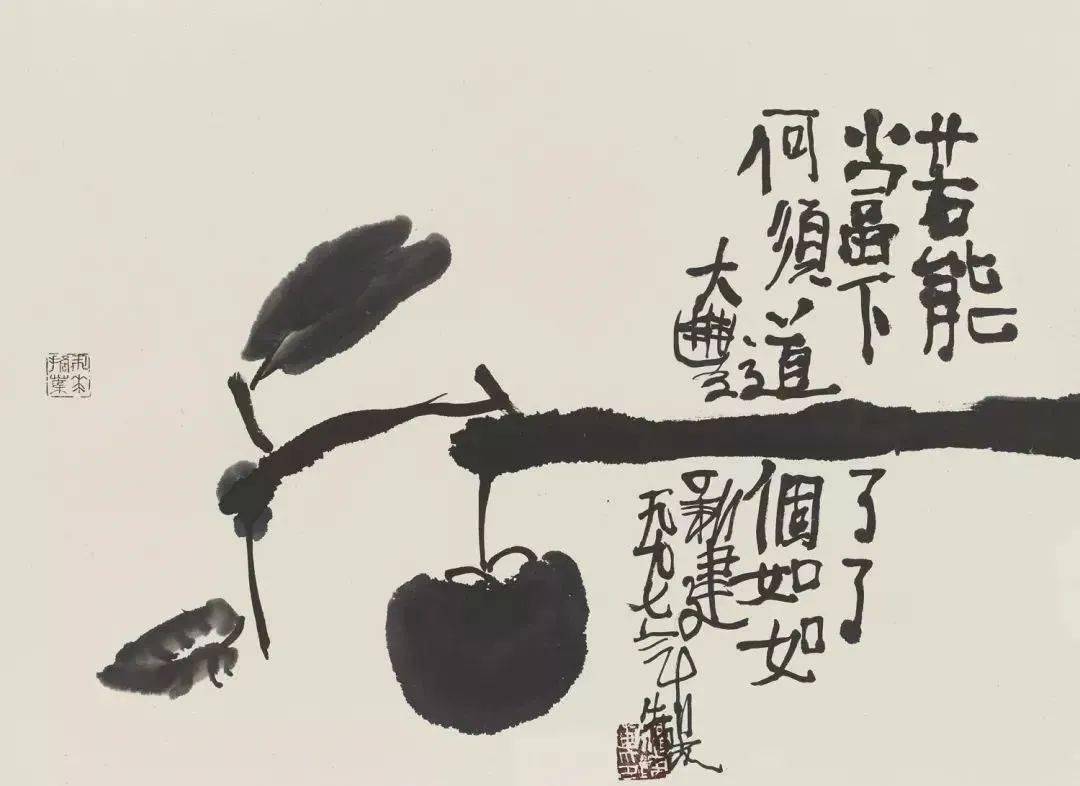 若能
當下了了
何須道個如如
大豐新建
九七年製